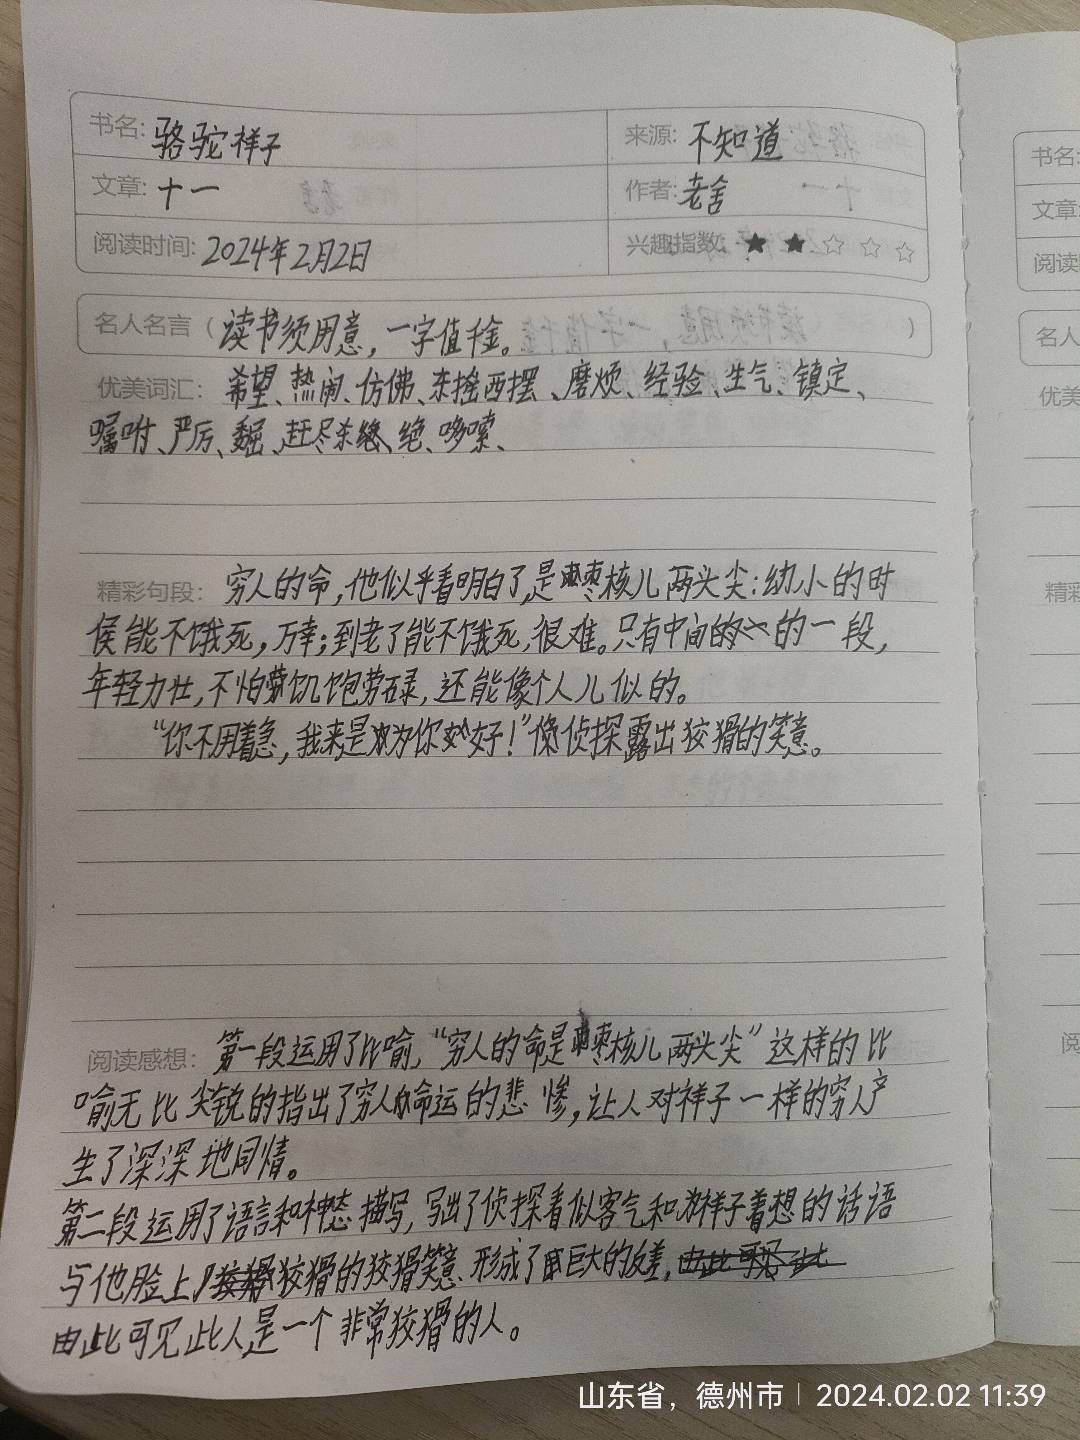 书名: 骆驼祥子
来源: 不知道
文章: 十一
作者: 老舍
阅读时间: 2024年2月2日
兴趣指数: ★ ★ ☆ ☆ ☆
名人名言（读书须用意，一字值千金。）
优美词汇: 希望、热闹、仿佛、东摇西摆、磨烦、经验、生气、镇定、
嘱咐、严厉、赶尽杀绝、绝、哆嗦、
精彩句段: 穷人的命，他似乎看明白了，是枣核儿两头尖：幼小的时
候能不饿死，万幸；到老了能不饿死，很难。只有中间的的一段，
年轻力壮，不怕饥饱劳碌，还能像个人儿似的。
“你不用着急，我来是为你好！”侦探露出狡猾的笑意。
阅读感想: 第一段运用了比喻，“穷人的命是枣核儿两头尖”这样的比
喻无比尖锐的指出了穷人命运的悲惨，让人对祥子一样的穷人产
生了深深地同情。
第二段运用了语言和神态描写，写出了侦探看似客气和为祥子着想的话语
与他脸上狡猾的狡猾笑意、形成了巨大的反差，
由此可见此人是一个非常狡猾的人。
书名:
文章:
阅读
名人
优美
精彩
阅
山东省，德州市 | 2024.02.02 11:39